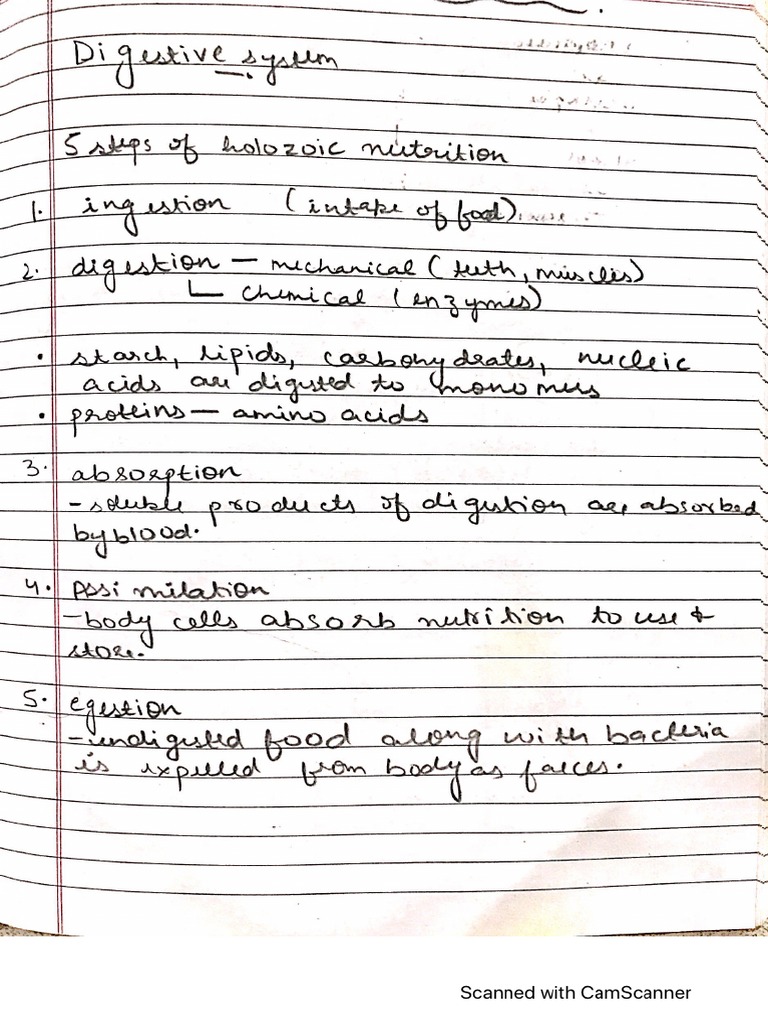 Digestive system
5 steps of holozoic nutrition
1. ingestion (intake of food)
2. digestion — mechanical (teeth, muscles)
└ chemical (enzymes)
• starch, lipids, carbohydrates, nucleic
acids are digested to monomers
• proteins — amino acids
3. absorption
- soluble products of digestion are absorbed
by blood.
4. Assimilation
- body cells absorb nutrition to use &
store.
5. egestion
- undigested food along with bacteria
is expelled from body as faeces.
Scanned with CamScanner